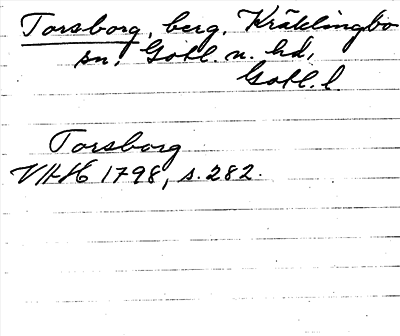 Torsborg, berg, Kräklingbo
sn, Gotl. n. hd,
Gotl. l.
Torsborg
VHH 1798, s. 282.